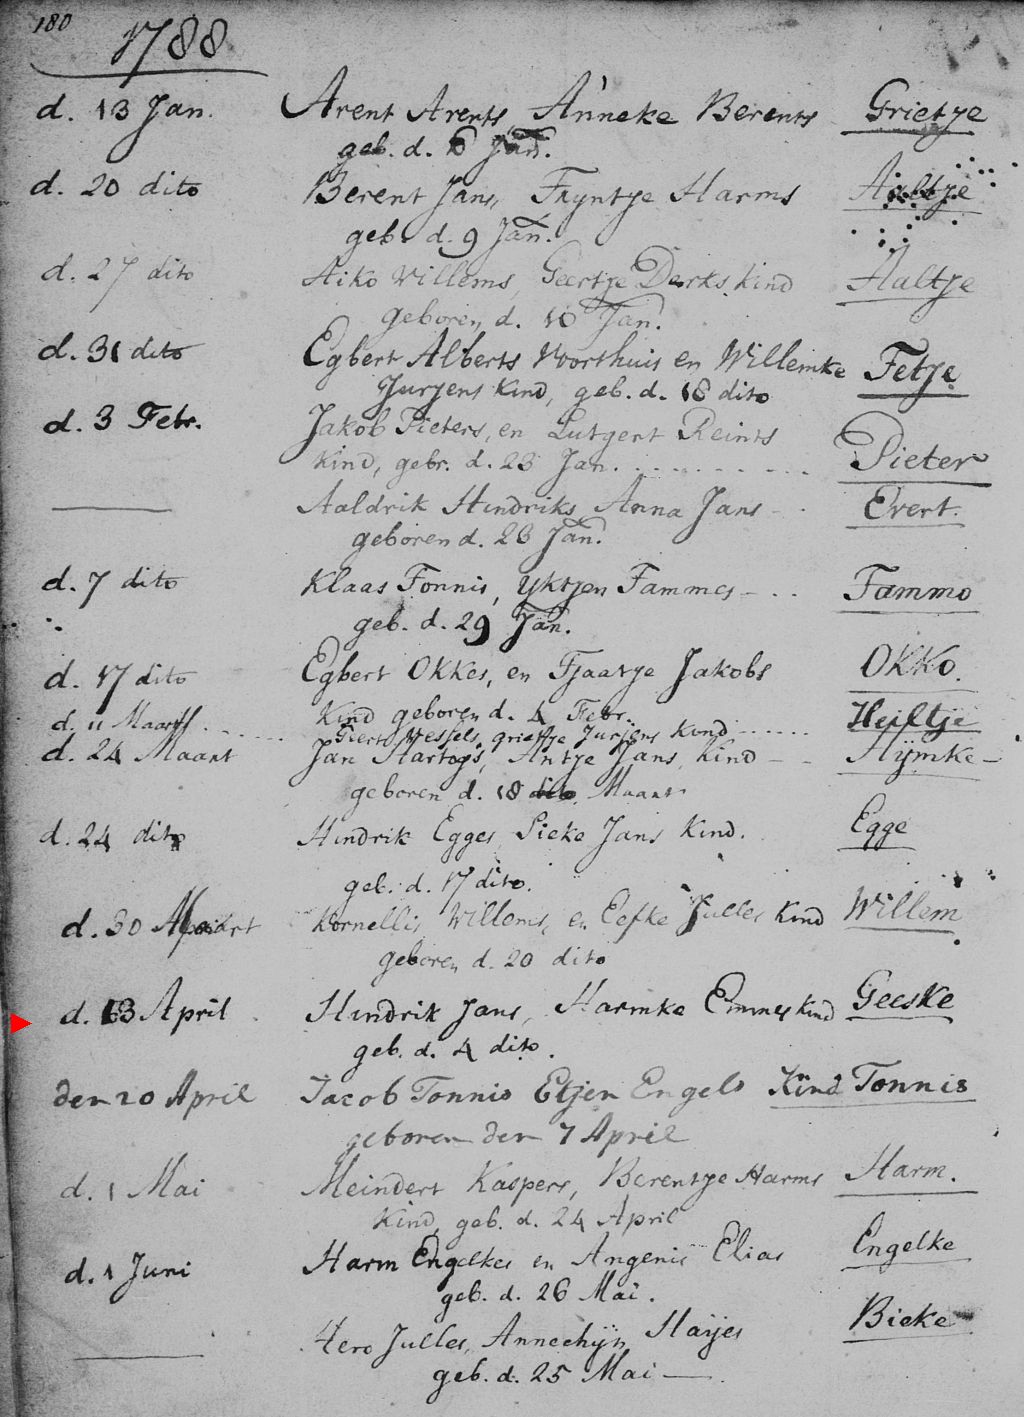 180
1788
d. 13 Jan. Arent Arents, Anneke Berents Grietje
geb. d. 6 Jan.
d. 20 dito Berent Jans, Tryntje Harms Aaltje
geb. d. 9 Jan.
d. 27 dito Aiko Willems, Geertje Derks kind Aaltje
geboren d. 10 Jan.
d. 31 dito Egbert Alberts Voorthuis en Willemke Fetje
Jurjens kind, geb. d. 18 dito
d. 3 Febr. Jakob Pieters, en Lutgert Reints
kind, gebr. d. 23 Jan. Pieter
Aaldrik Hindriks, Anna Jans Evert.
geboren d. 26 Jan.
d. 7 dito Klaas Fonnis, Yktjen Fammes Fammo
geb. d. 29 Jan.
d. 17 dito Egbert Okkes, en Tjaatje Jakobs Okko.
kind geboren d. 4 Febr.
d. 11 Maart Geert Wessels, grietje Jurjens kind Heiltje
d. 24 Maart Jan Hartogs, Antje Jans, kind Hijmke
geboren d. 18 Maart
d. 24 dito Hindrik Egges Sieke Jans kind. Egge
geb. d. 17 dito.
d. 30 Maart Kornellis Willems, en Eefke Julles kind Willem
geboren d. 20 dito
d. 13 April Hindrik Jans, Harmke Emmes kind Geeske
geb. d. 4 dito.
den 20 April Jacob Tonnis Etjen Engels Kind Tonnis
geboren den 7 April
d. 1 Mai Meindert Kaspers, Berentje Harms Harm.
kind, geb. d. 24 April
d. 1 Juni Harm Engelkes en Angenis Elias Engelke
geb. d. 26 Mai.
Hero Julles, Annechijn Haijes Bieke
geb. d. 25 Mai